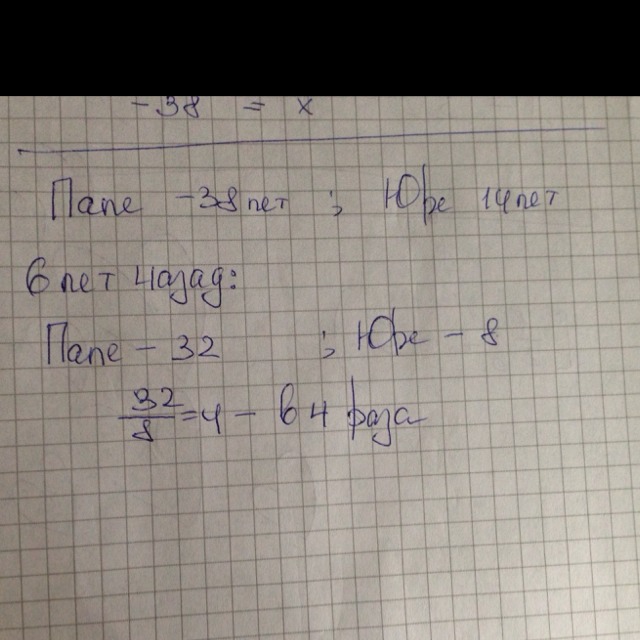 -38 = x
Папе -38 лет ; Юре 14 лет
6 лет назад:
Папе - 32 ; Юре - 8
32/8 = 4 - в 4 раза